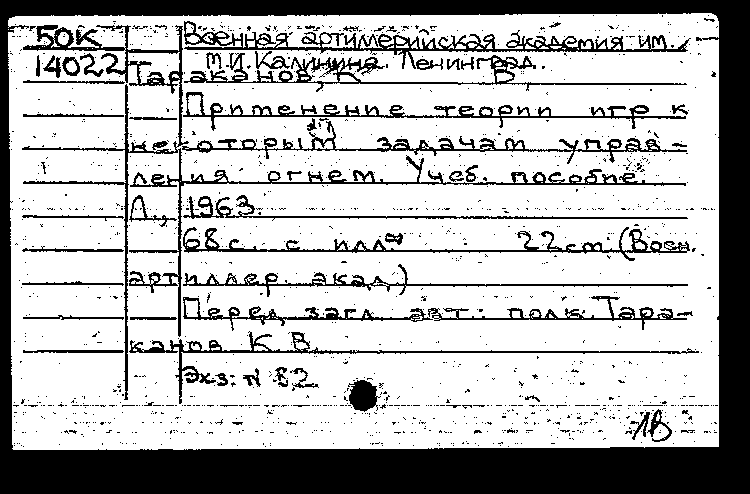 50К
14022
Военная артиллерийская академия им.
М.И. Калинина. Ленинград.
Тараканов, К В
Применение теории игр к
некоторым задачам управ-
ления огнем. Учеб. пособие.
Л., 1963.
68 с. с илл 22 см. (Воен.
артиллер. акад.)
Перед загл. авт.: полк. Тара-
канов К. В.
Экз: N 82
1В